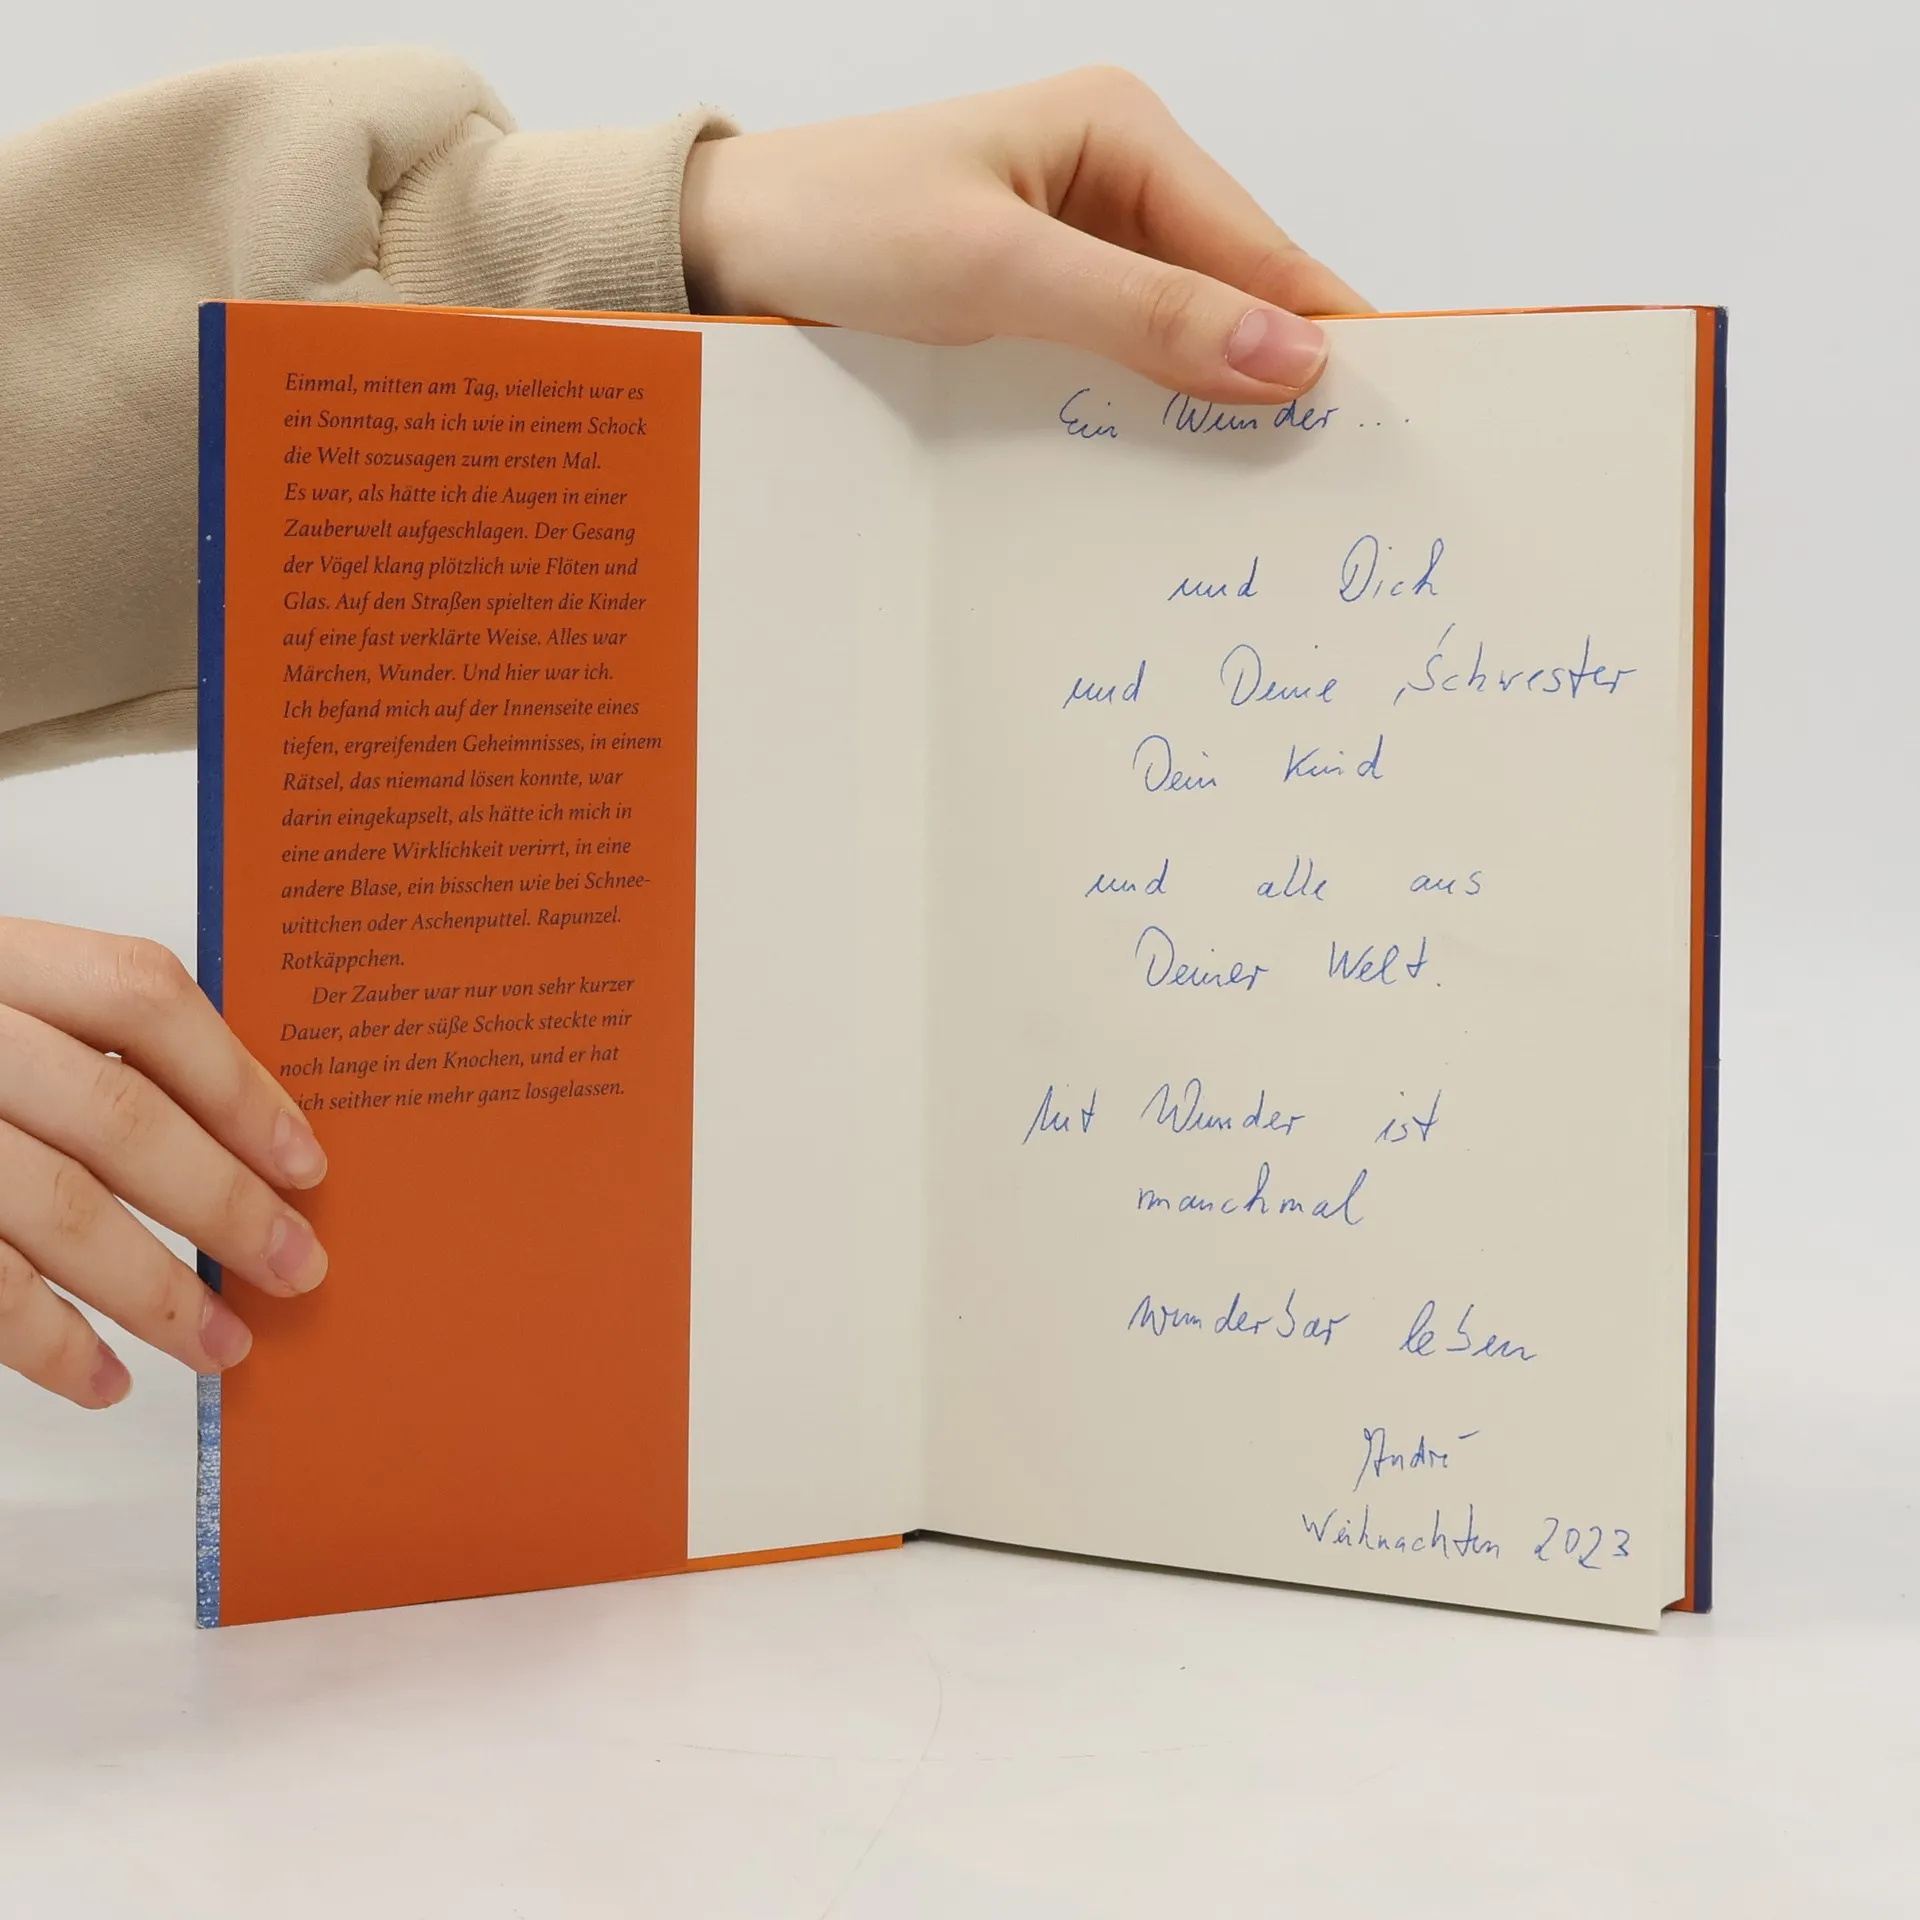 Einmal, mitten am Tag, vielleicht war es
ein Sonntag, sah ich wie in einem Schock
die Welt sozusagen zum ersten Mal.
Es war, als hätte ich die Augen in einer
Zauberwelt aufgeschlagen. Der Gesang
der Vögel klang plötzlich wie Flöten und
Glas. Auf den Straßen spielten die Kinder
auf eine fast verklärte Weise. Alles war
Märchen, Wunder. Und hier war ich.
Ich befand mich auf der Innenseite eines
tiefen, ergreifenden Geheimnisses, in einem
Rätsel, das niemand lösen konnte, war
darin eingekapselt, als hätte ich mich in
eine andere Wirklichkeit verirrt, in eine
andere Blase, ein bisschen wie bei Schnee-
wittchen oder Aschenputtel. Rapunzel.
Rotkäppchen.
Der Zauber war nur von sehr kurzer
Dauer, aber der süße Schock steckte mir
noch lange in den Knochen, und er hat
seither nie mehr ganz losgelassen.
Ein Wunder ...
und Dich
und Deine Schwester
Dein Kind
und alle aus
Deiner Welt.
Mit Wunder ist
manchmal
wunderbar leben
André
Weihnachten 2023